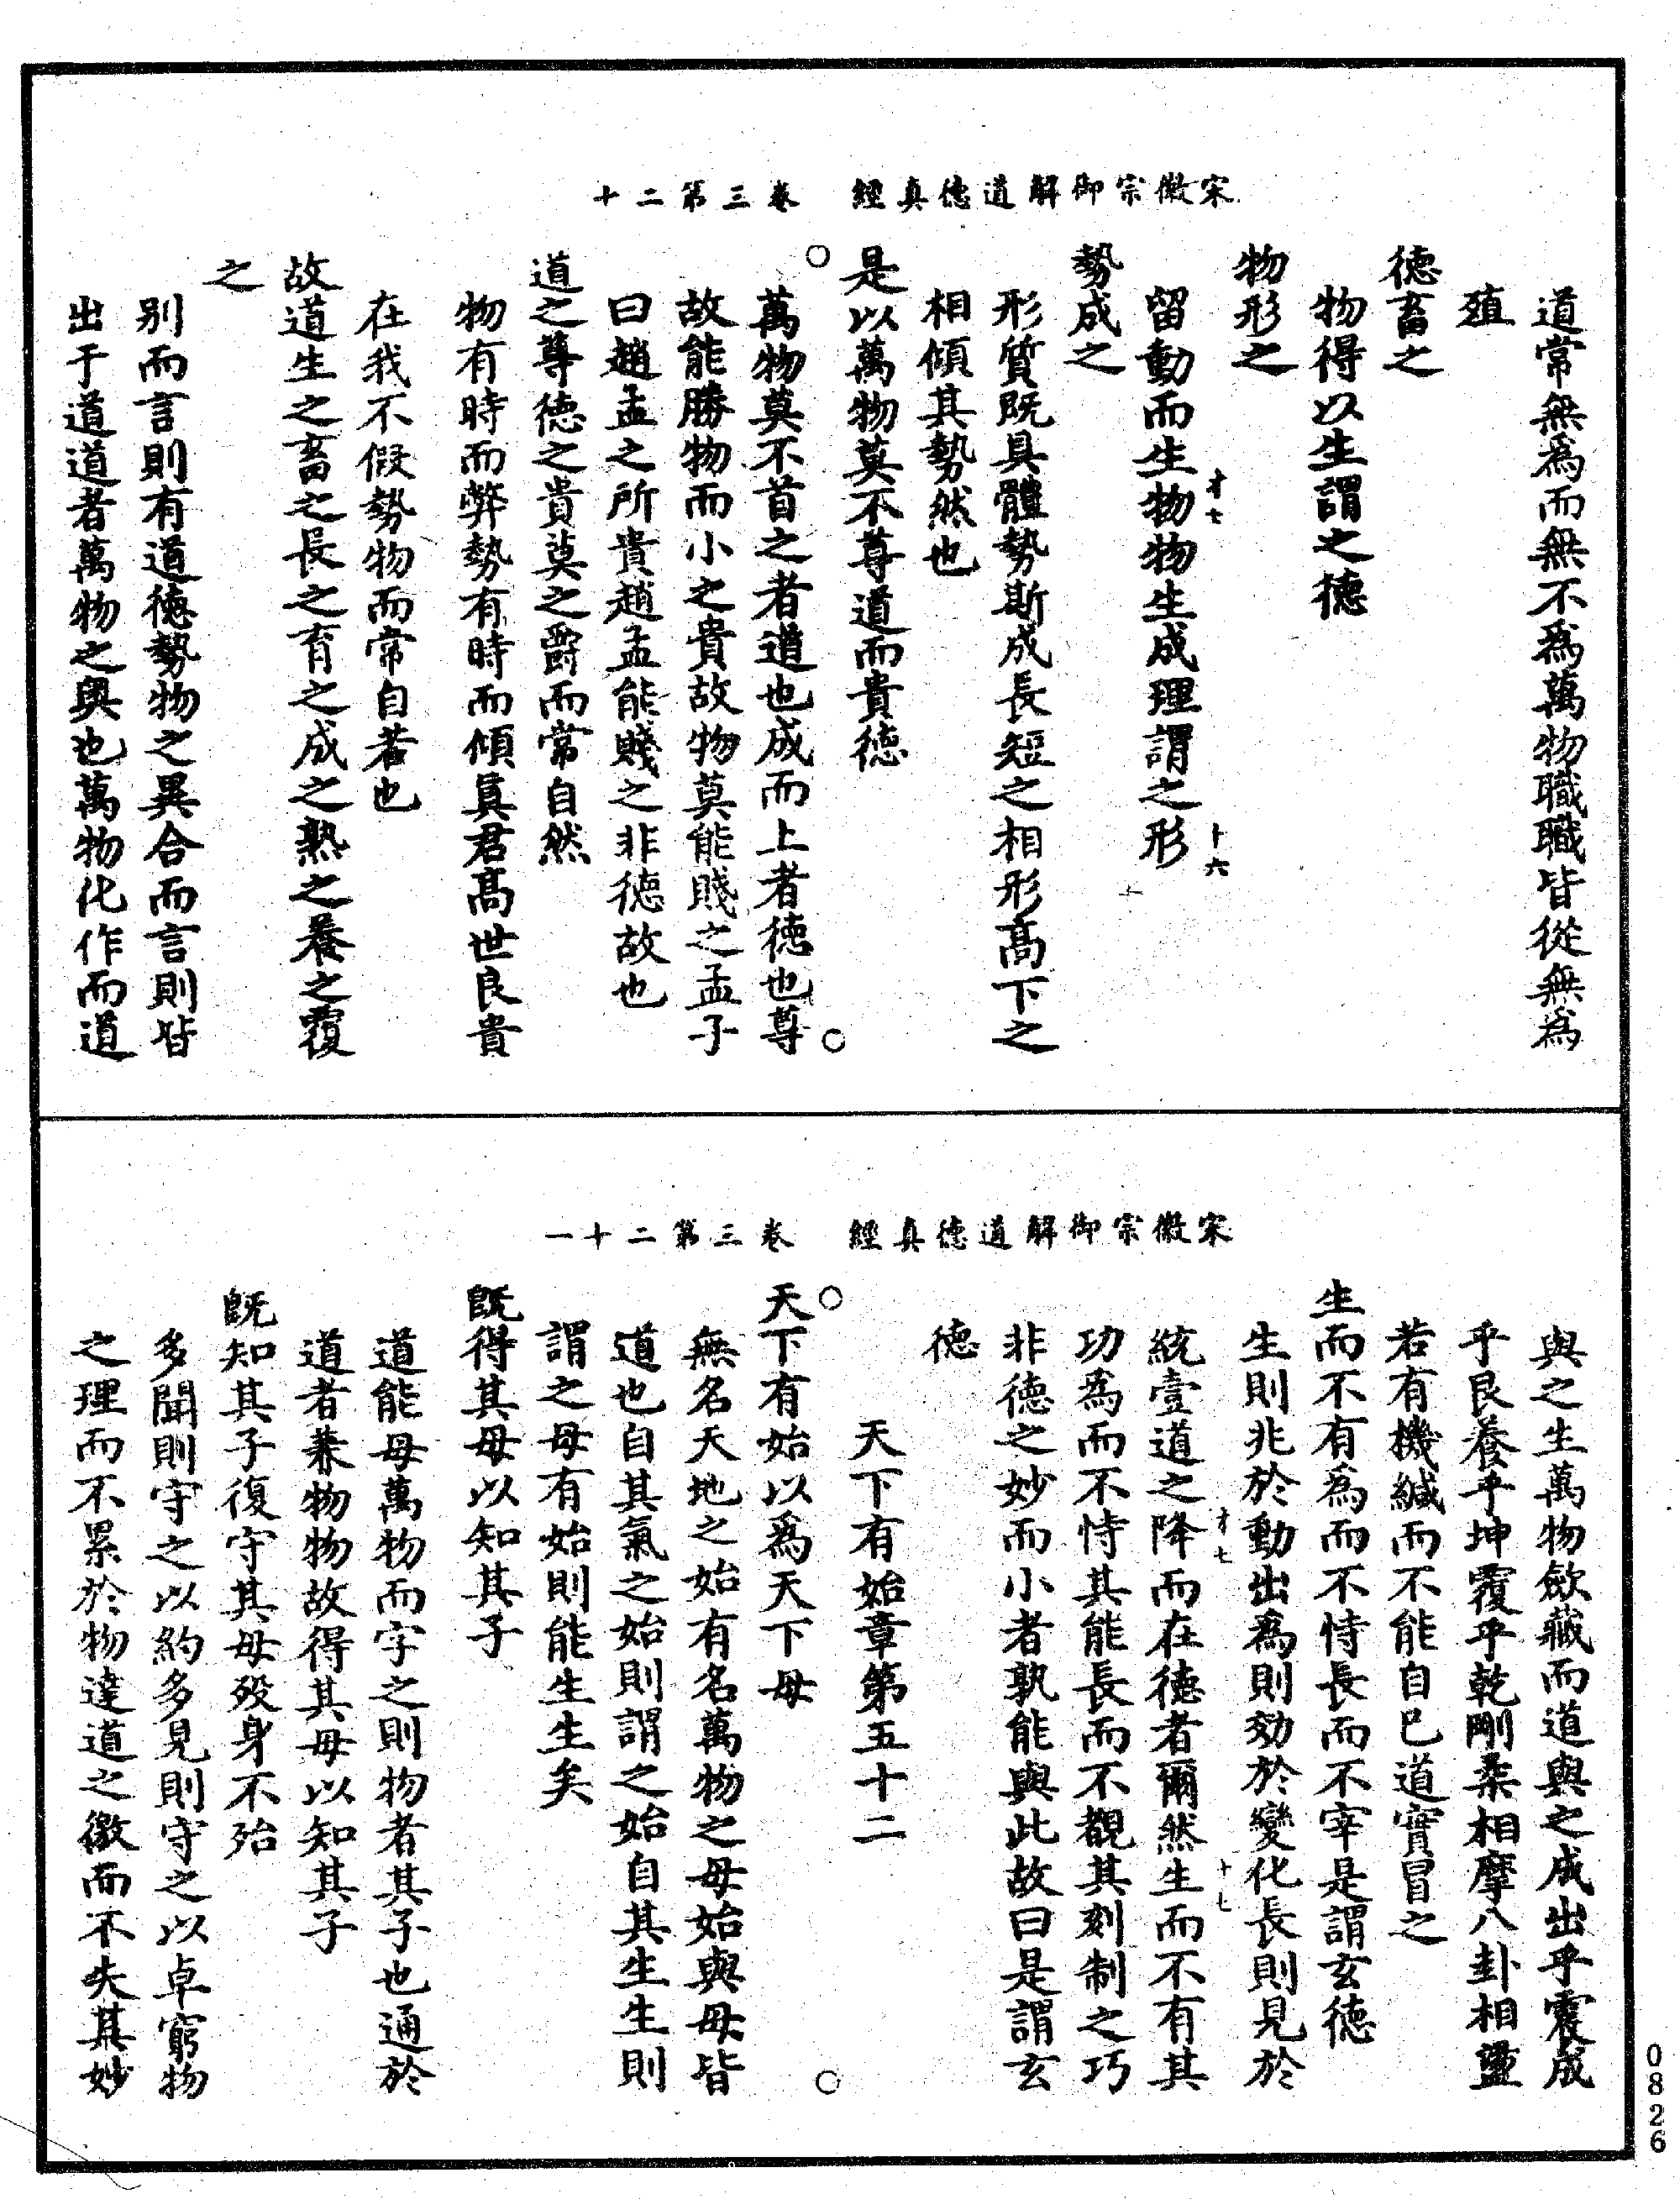 宋徽宗御解道德真經　卷三第二十
道常無爲而無不爲萬物職職皆從無爲
殖
德畜之
物得以生謂之德
物形之
留動而生物物生成理謂之形
才七
卜六
勢成之
形質既具體勢斯成長短之相形高下之
相傾其勢然也
是以萬物莫不尊道而貴德
萬物莫不首之者道也成而上者德也尊
故能勝物而小之貴故物莫能賤之孟子
曰趙孟之所貴趙孟能賤之非德故也
道之尊德之貴莫之爵而常自然
物有時而弊勢有時而傾眞君高世良貴
在我不假勢物而常自若也
故道生之畜之長之育之成之熟之養之覆
之
别而言則有道德勢物之異合而言則皆
出于道道者萬物之奥也萬物化作而道
宋徽宗御解道德真經　卷三第二十一
與之生萬物歛藏而道與之成出乎震成
乎艮養乎坤覆乎乾剛柔相摩八卦相盪
若有機緘而不能自巳道實冒之
生而不有爲而不恃長而不宰是謂玄德
生則兆於動出爲則効於變化長則見於
才七
十七
統壹道之降而在德者爾然生而不有其
功爲而不恃其能長而不覩其刻制之巧
非德之妙而小者孰能與此故曰是謂玄
德
天下有始章第五十二
天下有始以爲天下母
無名天地之始有名萬物之母始與母皆
道也自其氣之始則謂之始自其生生則
謂之母有始則能生生矣
旣得其母以知其子
道能母萬物而字之則物者其子也通於
道者兼物物故得其母以知其子
旣知其子復守其母殁身不殆
多聞則守之以約多見則守之以卓窮物
之理而不累於物達道之徼而不失其妙
0826